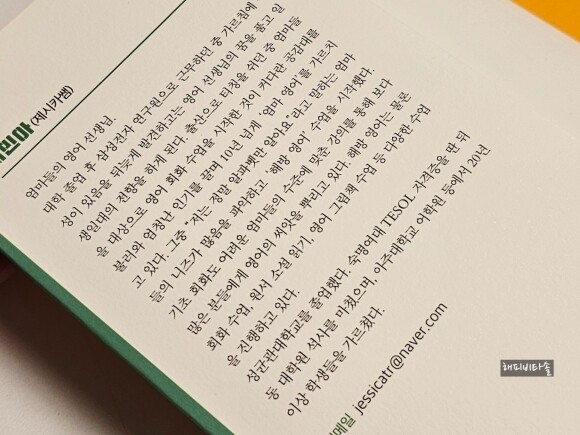 민아(제시카쌤)
엄마들의 영어 선생님.
대학 졸업 후 삼성전자 연구원으로 근무하던 중 가르침에
성이 있음을 뒤늦게 발견하고는 영어 선생님의 꿈을 품고 일
생일대의 전향을 하게 된다. 출산으로 티칭을 쉬던 중 엄마들
을 대상으로 영어 회화 수업을 시작한 것이 커다란 공감대를
불러와 엄청난 인기를 끌며 10년 넘게 '엄마 영어'를 가르치
고 있다. 그중 "저는 정말 알파벳만 알아요"라고 말하는 엄마
들의 니즈가 많음을 파악하고 '해방 영어' 수업을 시작했다.
기초 회화도 어려운 엄마들의 수준에 맞춘 강의를 통해 보다
많은 분들에게 영어의 씨앗을 뿌리고 있다. 해방 영어는 물론
회화 수업, 원서 소설 읽기, 영어 그림책 수업 등 다양한 수업
을 진행하고 있다.
성균관대학교를 졸업했다. 숙명여대 TESOL 자격증을 딴 뒤
동 대학원 석사를 마쳤으며, 아주대학교 어학원 등에서 20년
이상 학생들을 가르쳤다.
메일 jessicatr@naver.com
해피비타솔